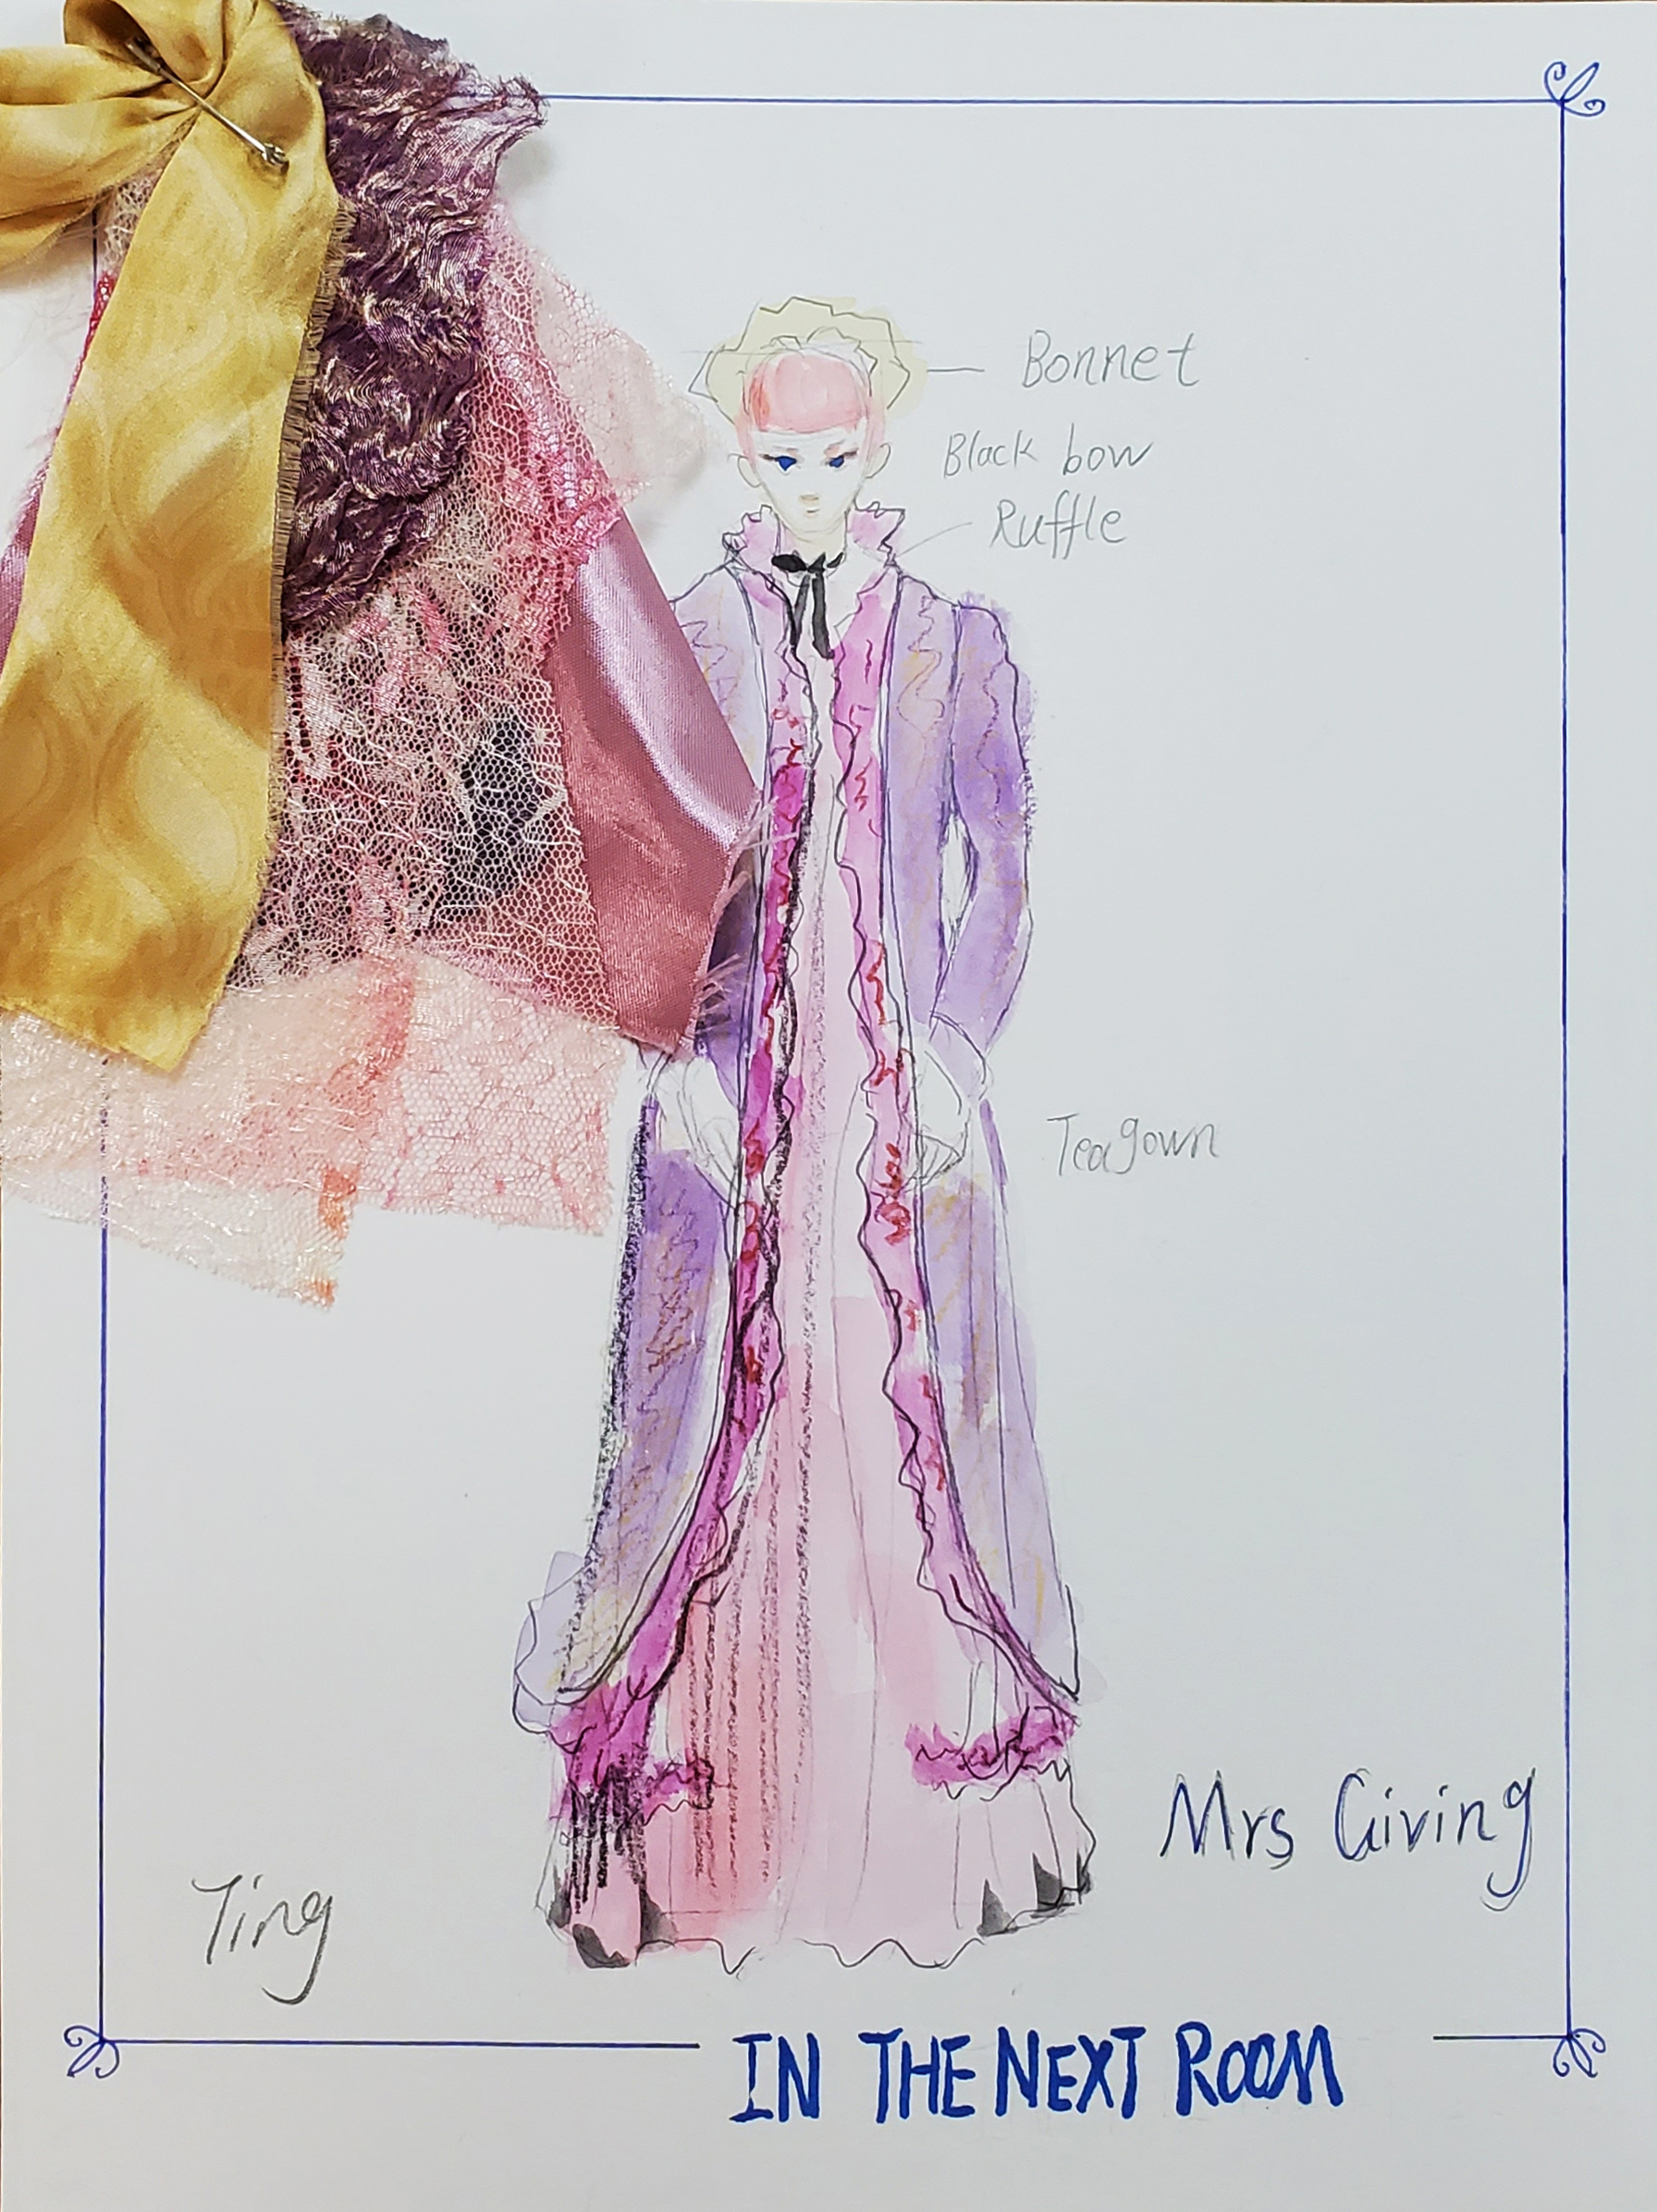 Bonnet
Black bow
Ruffle
Teagown
Mrs Giving
Ting
IN THE NEXT ROOM